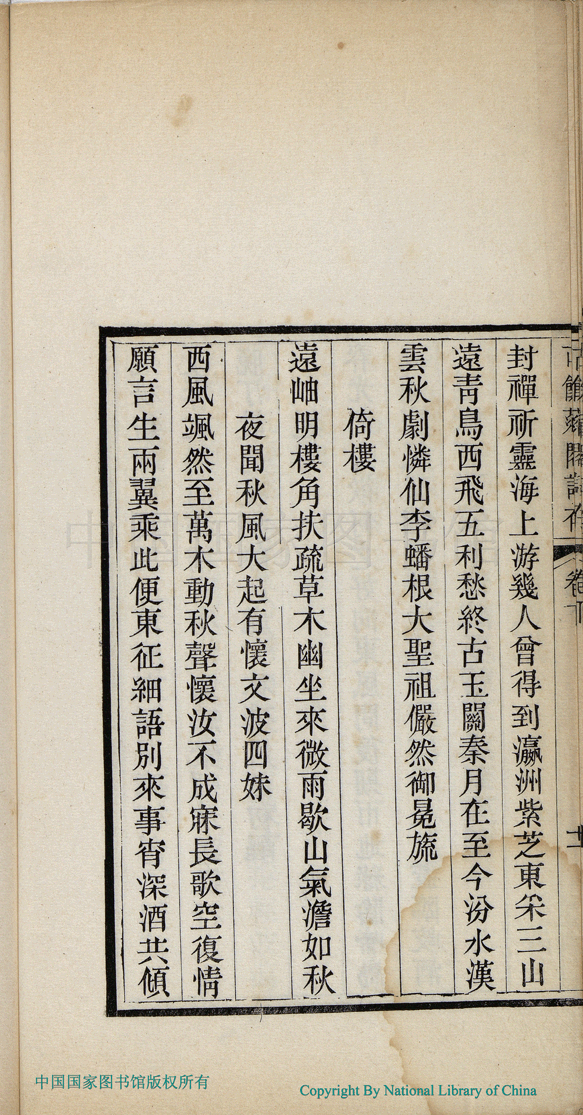 封禪祈靈海上游幾人曾得到瀛洲紫芝東采三山
遠靑鳥西飛五利愁終古玉關秦月在至今汾水漢
雲秋劇憐仙李蟠根大聖祖儼然御冕旒
倚樓
遠岫明樓角扶疏草木幽坐來微雨歇山氣澹如秋
夜聞秋風大起有懷文波四妹
西風颯然至萬木動秋聲懷汝不成寐長歌空復情
願言生兩翼乘此便東征細語別來事宵深酒共傾
中国国家图书馆版权所有
Copyright By National Library of China